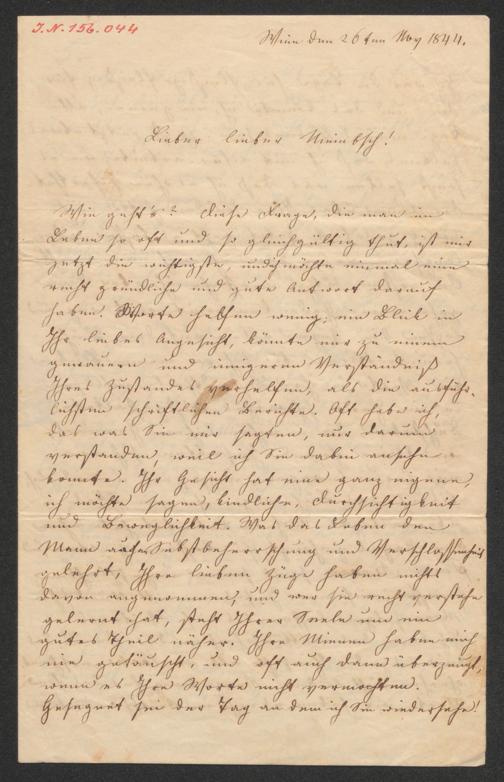 J. N. 156.044
Wien den 26ten Nov 1844.
Lieber lieber Niembsch!
Wie geht's? Diese Frage, die man im
Leben so oft und so gleichgültig thut, ist mir
jetzt die wichtigste, und ich möchte einmal eine
recht gründliche und gute Antwort darauf
haben. Worte helfen wenig; ein Blick in
Ihr liebes Angesicht, könnte mir zu einem
genauern und innigeren Verständniß
Ihres Zustandes verhelfen, als die ausführ-
lichsten schriftlichen Berichte. Oft habe ich,
das was Sie mir sagten, nur darum
verstanden, weil ich Sie dabei ansehen
konnte. Ihr Gesicht hat eine ganz eigene,
ich möchte sagen, kindliche, Durchsichtigkeit
und Beweglichkeit. Was das Leben den
Mann auch Selbstbeherrschung und Verschlossenheit
gelehrt, Ihre lieben Züge haben nichts
davon angenommen, und wer sie recht verstehn
gelernt hat, steht Ihrer Seele um ein
gutes Theil näher. Ihre Mienen haben mich
nie getäuscht, und oft auch dann überzeugt,
wenn es Ihre Worte nicht vermochten.
Gesegnet sei der Tag an dem ich Sie wiedersehe!